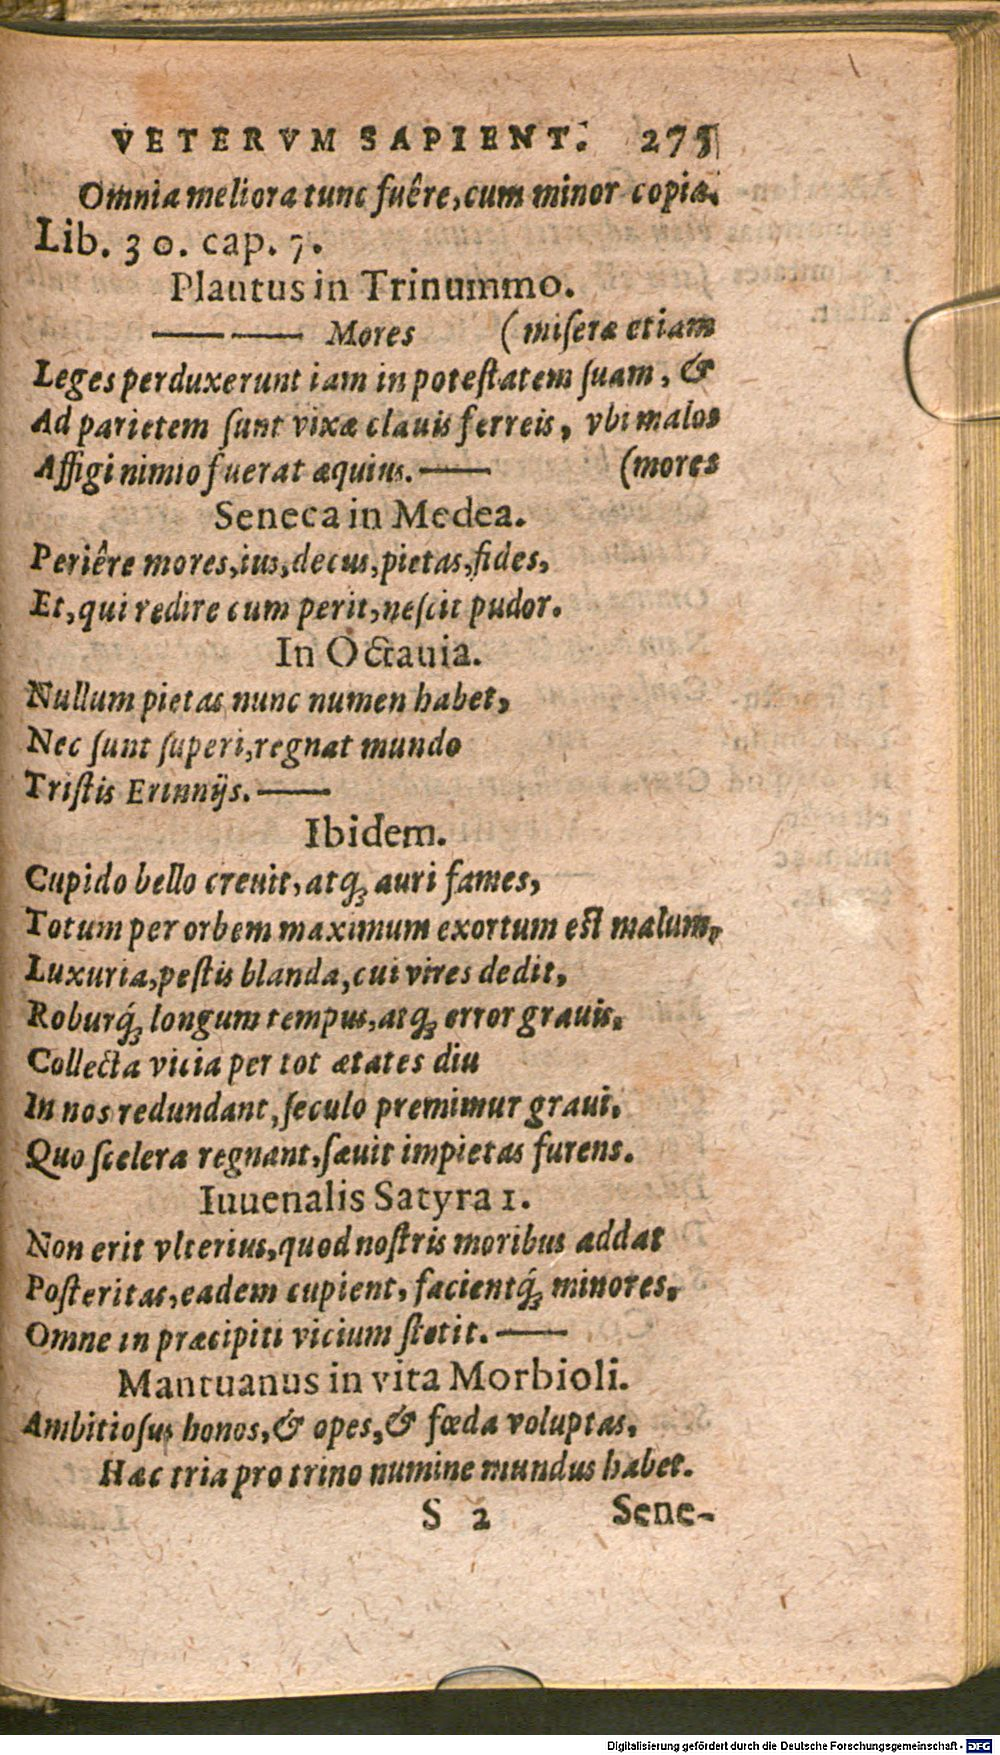 VETERVM SAPIENT. 275
Omnia meliora tunc fuêre, cum minor copia.
Lib. 30. cap. 7.
Plautus in Trinummo.
—— —— Mores (miseræ etiam
Leges perduxerunt iam in potestatem suam, &
Ad parietem sunt vixæ clauis ferreis, vbi malos
Affigi nimio fuerat æquius. —— (mores
Seneca in Medea.
Periêre mores, ius, decus, pietas, fides,
Et, qui redire cum perit, nescit pudor.
In Octauia.
Nullum pietas nunc numen habet,
Nec sunt superi, regnat mundo
Tristis Erinnijs. ——
Ibidem.
Cupido bello creuit, atq; auri fames,
Totum per orbem maximum exortum est malum,
Luxuria, pestis blanda, cui vires dedit,
Roburq́; longum tempus, atq; error grauis.
Collecta vitia per tot ætates diu
In nos redundant, seculo premimur graui.
Quo scelera regnant, sæuit impietas furens.
Iuuenalis Satyra 1.
Non erit vlterius, quod nostris moribus addat
Posteritas, eadem cupient, facientq́; minores.
Omne in præcipiti vicium stetit. ——
Mantuanus in vita Morbioli.
Ambitiosus honos, & opes, & fœda voluptas,
Hæc tria pro trino numine mundus habet.
S 2 Sene-
Digitalisierung gefördert durch die Deutsche Forschungsgemeinschaft - DFG